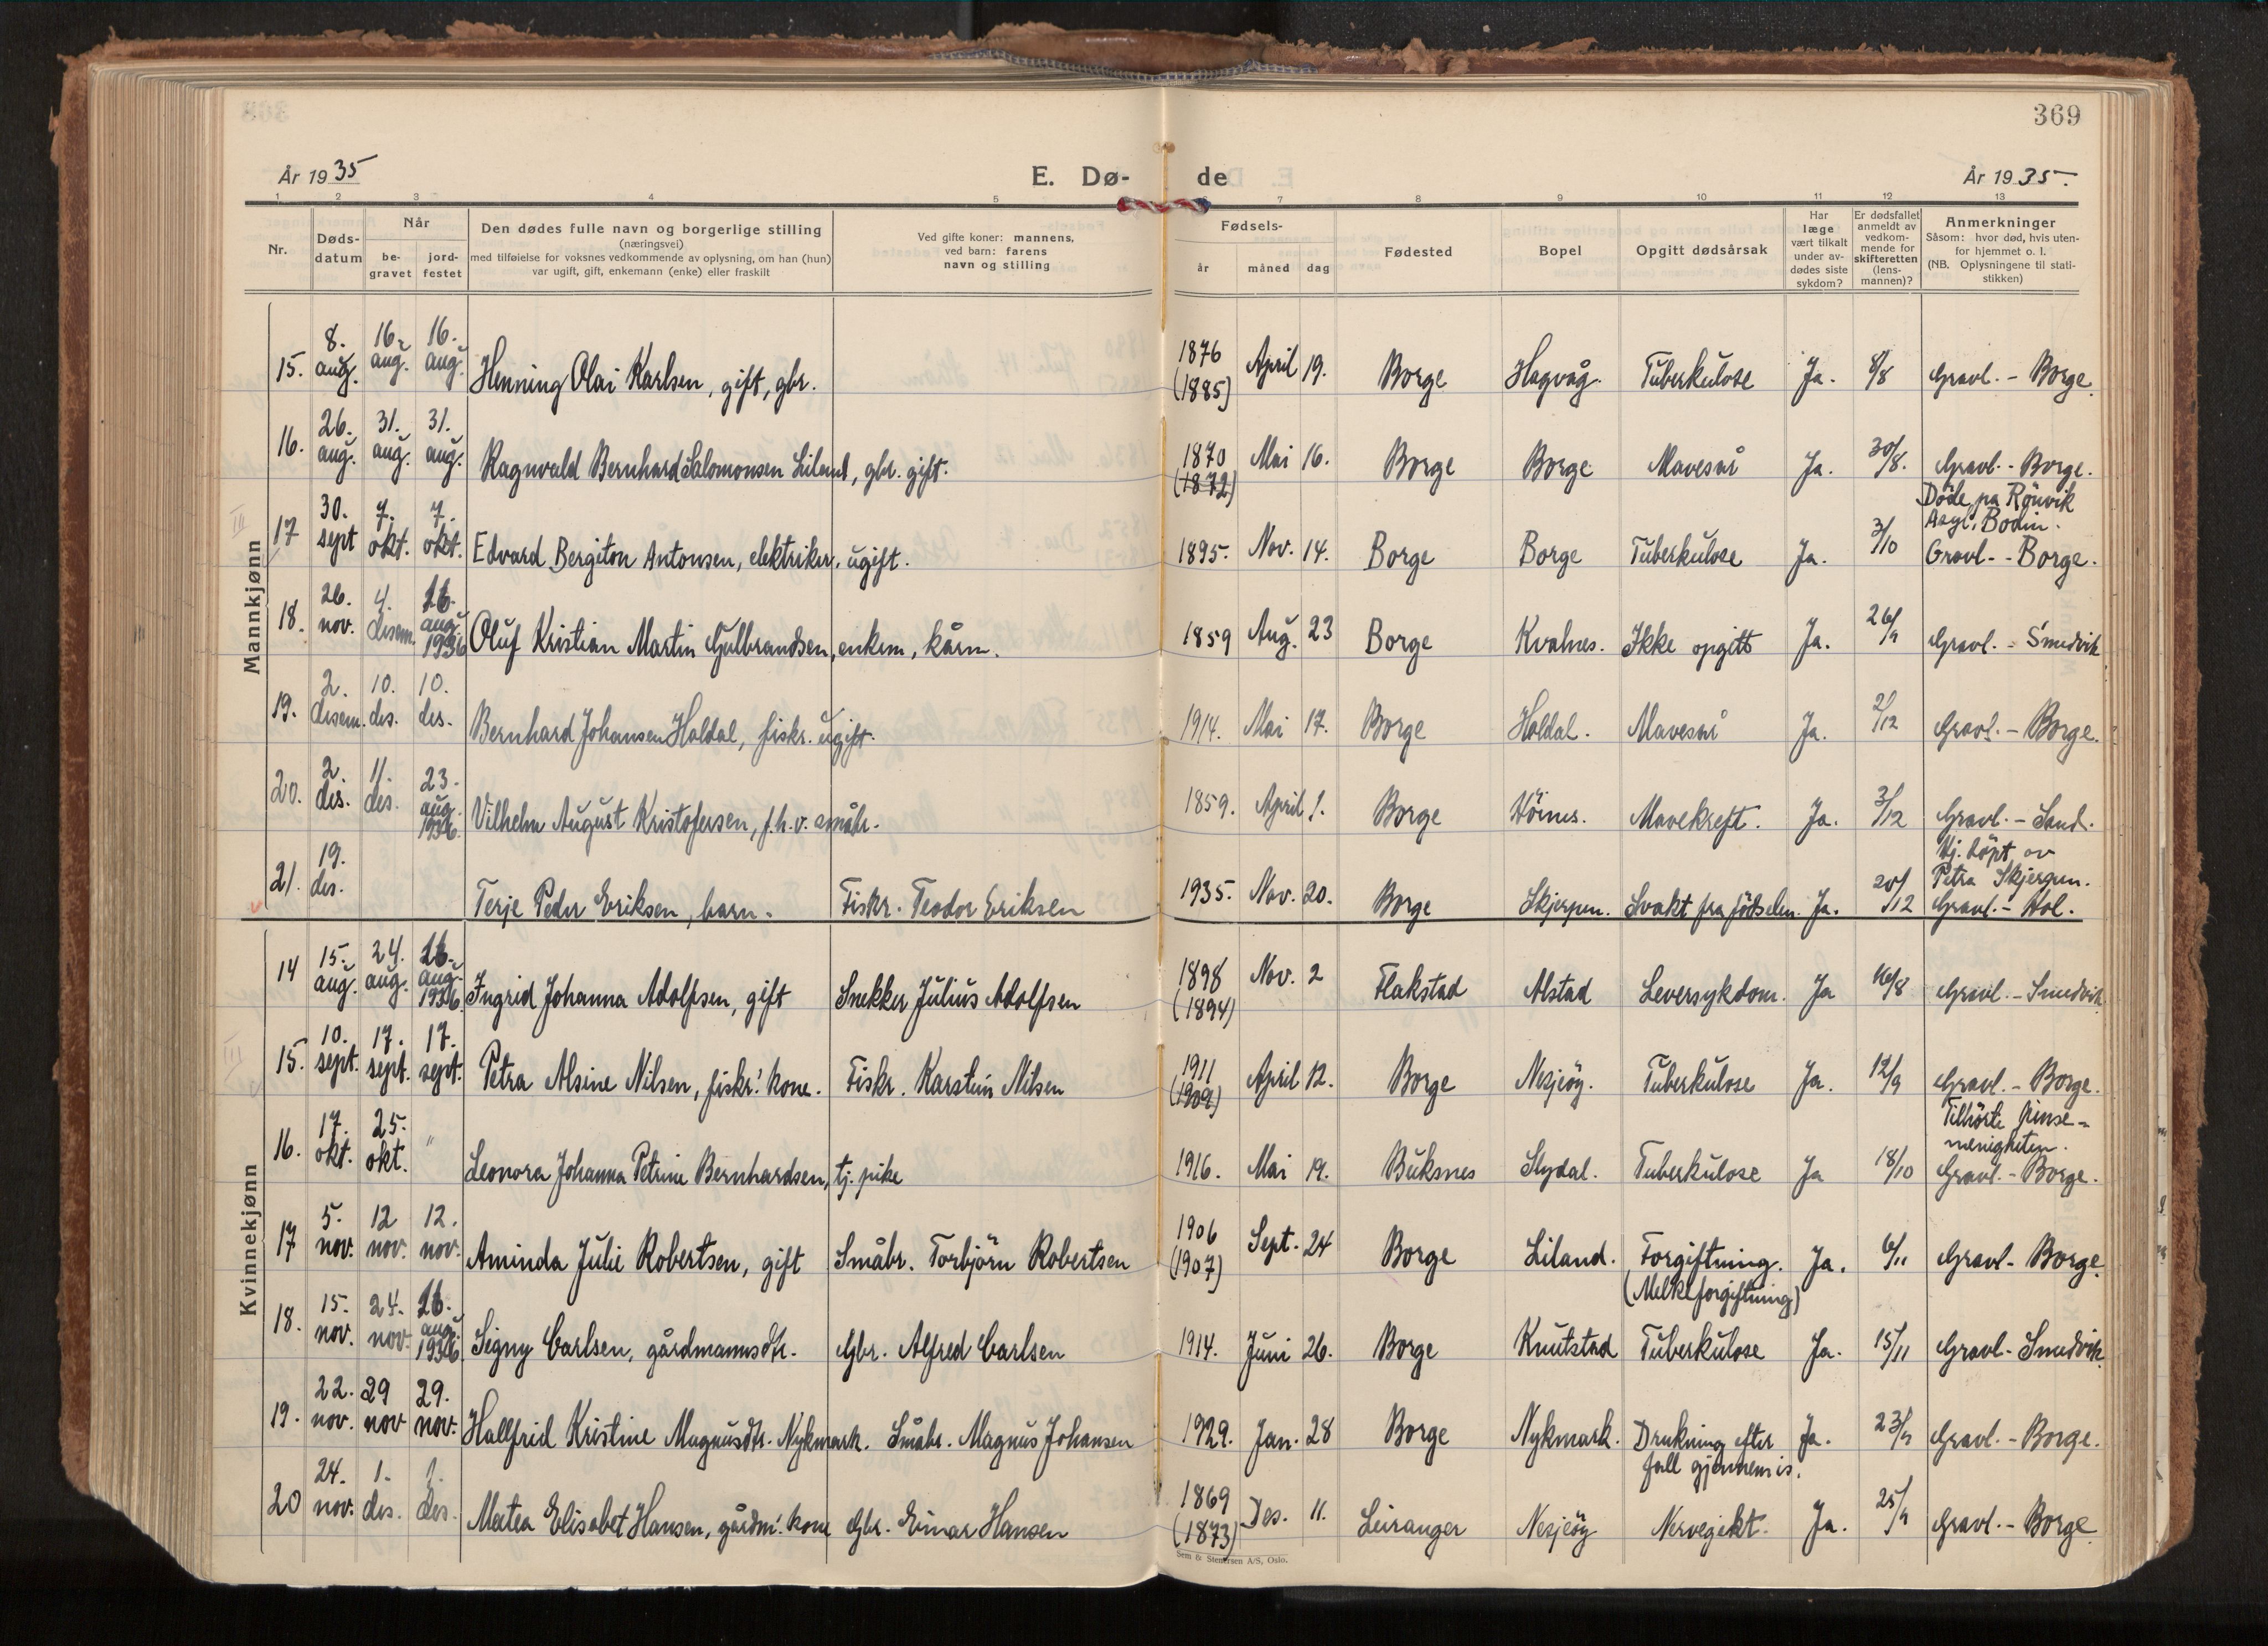 369
År 1935
E. Dø-
de
År 1935.
1 2 3 4 5 7 8 9 10 11 12 13
Nr.
Døds-
datum
Når
be-
gravet
jord-
festet
Den dødes fulle navn og borgerlige stilling
(næringsvei)
med tilføielse for voksnes vedkommende av oplysning, om han (hun)
var ugift, gift, enkemann (enke) eller fraskilt
Ved gifte koner: mannens,
ved barn: farens
navn og stilling
Fødsels-
år måned dag
Fødested
Bopel
Opgitt dødsårsak
Har
læge
vært tilkalt
under av-
dødes siste
sykdom?
Er dødsfallet
anmeldt av
vedkom-
mende for
skifteretten
(lens-
mannen)?
Anmerkninger
Såsom: hvor død, hvis uten-
for hjemmet o. l.
(NB. Oplysningene til stati-
stikken)
Mannkjønn
15. 8. aug. 16. aug. 16. aug. Henning Olai Karlsen, gift, gbr. 1876 (1885) April 19. Borge Hagvåg. Tuberkulose Ja. 8/8 Gravl. - Borge.
16. 26. aug. 31. aug. 31. aug. Ragnvald Bernhard Salomonsen Liland, gbr. gift. 1870 (1872) Mai 16. Borge Borge Mavesår Ja. 30/8. Gravl. - Borge.
17 30. sept 7. okt. 7. okt. Edvard Bergiton Antonsen, elektriker, ugift. 1895. Nov. 14. Borge Borge Tuberkulose Ja. 3/10 Döde pa Rönvik
Asyl, Bodin.
Gravl. - Borge.
18. 26. nov. 4. desem. 16. aug. 1936 Oluf Kristian Martin Gulbrandsen, enkem, kårm. 1859 Aug. 23 Borge Kvalnes. Ikke opgitt Ja. 26/11 Gravl. - Smedvik
19. 2. desem. 10. des. 10. des. Bernhard Johansen Haldal, fiskr. ugift. 1914. Mai 17. Borge Haldal. Mavesår Ja. 2/12 Gravl. - Borge.
20. 2. des. 11. des. 23. aug. 1936. Vilhelm August Kristofersen, f.h.v. småbr. 1859. April 1. Borge Vöines. Mavekreft. Ja. 3/12 Gravl. - Sand.
21. 19. des. Terje Peder Eriksen, barn. Fiskr. Teodor Eriksen 1935. Nov. 20. Borge Skjerpen. Svakt fra födselen. Ja. 20/12 Hj. döpt av
Petra Skjerpen.
Gravl. - Hol.
Kvinnekjønn
14 15. aug. 24. aug. 16. aug. 1936. Ingrid Johanna Adolfsen, gift Snekker Julius Adolfsen 1898 (1894) Nov. 2 Flakstad Alstad Leversykdom. Ja 16/8 Gravl. - Smedvik
15. 10. sept. 17. sept. 17. sept. Petra Alsine Nilsen, fiskr.' kone. Fiskr. Karstein Nilsen 1911 (1909) April 12. Borge Nesjeöy. Tuberkulose Ja. 12/9 Gravl. - Borge.
16. 17. okt. 25. okt. " Leonora Johanna Petrine Bernhardsen, tj. pike 1916. Mai 19. Buksnes Slydal. Tuberkulose Ja 18/10 Tilhörte pinse-
menigheten.
Gravl. - Borge.
17 5. nov. 12 nov. 12. nov. Aminda Julie Robertsen, gift Småbr. Torbjörn Robertsen 1906 (1907) Sept. 24 Borge Liland. Forgiftning.
(Melkeforgiftning) Ja. 6/11 Gravl. - Borge
18. 15. nov. 24. nov. 16. aug. 1936. Signy Carlsen, gårdmannsdtr. Gbr. Alfred Carlsen 1914. Juni 26. Borge Knutstad Tuberkulose Ja. 15/11 Gravl. - Smedvik
19. 22. nov. 29 nov 29. nov. Hallfrid Kristine Magnusdtr. Nykmark. Småbr. Magnus Johansen 1929. Jan. 28 Borge Nykmark. Drukning efter
fall gjennem is. Ja. 23/11 Gravl. - Borge.
20 24. nov. 1. des. 1. des. Matea Elisabet Hansen, gårdm.' kone Gbr. Einar Hansen 1869 (1873) Des. 11. Leiranger Nesjeöy Nervegikt. Ja. 25/11 Gravl. - Borge.
Sem & Stenersen A/S, Oslo.